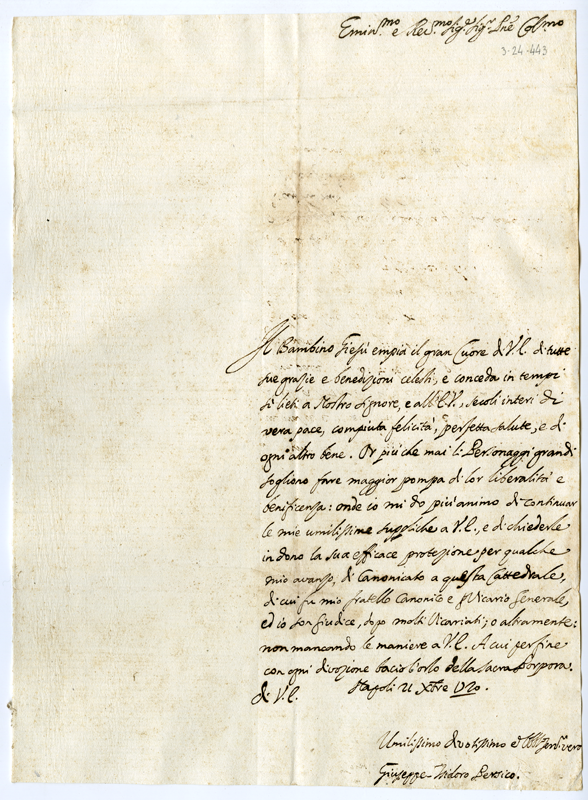 Emin.mo e Rev.mo Sig.r Sig.r Pne Col.mo
3-24-443
Il Bambino Giesù empia il gran Cuore di V.E. di tutte
sue grazie e benedizioni celesti, e conceda in tempi
sì lieti a Nostro Signore, e all'E.V., secoli interi di
vera pace, compiuta felicità, perfetta salute, e di
ogni altro bene. Or più che mai li Personaggi grandi
sogliono fare maggior pompa di lor liberalità e
beneficenza: onde io mi do più animo di continuar
le mie umilissime suppliche a V.E., e di chiederle
in dono la sua efficace protezione per qualche
mio avanzo, di Canonicato a questa Cattedrale,
di cui fu mio fratello Canonico e Vicario Generale,
ed io son Giudice, dopo molti Vicariati; o altramente:
non mancando le maniere a V.E. A cui per fine
con ogni divozione bacio l'orlo della sacra Porpora.
di V.E. Napoli 21 Xbre 1720.
Umilissimo divotissimo ed Serv. vero
Giuseppe Isidoro Persico.